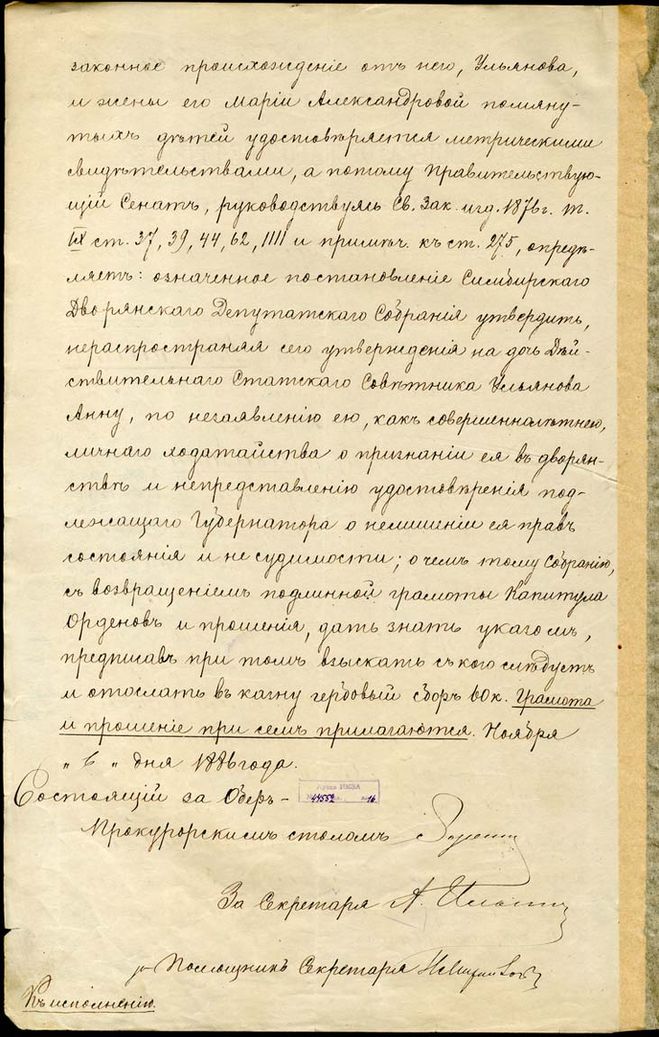 законное происхожденіе отъ него, Ульянова,
и жены его Маріи Александровой помяну-
тыхъ дѣтей удостовѣряется метрическими
свидѣтельствами, а потому Правительствую-
щій Сенатъ, руководствуясь Св. Зак. изд. 1876 г. т.
IX ст. 37, 39, 44, 62, 1111 и примѣч. къ ст. 275, опредѣ-
ляетъ: означенное постановленіе Симбирскаго
Дворянскаго Депутатскаго Собранія утвердить,
нераспространяя сего утвержденія на дочь Дѣй-
ствительнаго Статскаго Совѣтника Ульянова
Анну, по незаявленію ею, какъ совершеннолѣтнею,
личнаго ходатайства о признаніи ея въ дворян-
ствѣ и непредставленію удостовѣренія под-
лежащаго Губернатора о нелишеніи ея правъ
состоянія и не судимости; о чемъ тому Собранію,
съ возвращеніемъ подлинной грамоты Капитула
Орденовъ и прошенія, дать знать указомъ,
предписавъ при томъ взыскать съ кого слѣдуетъ
и отослать въ казну гербовый сборъ 60 к. Грамота
и прошеніе при семъ прилагаются. Ноября
„ 6 „ дня 1886 года.
Состоящій за Оберъ-
44552 16
Прокурорскимъ столомъ
За Секретаря А.
Помощникъ Секретаря
Къ исполненію.